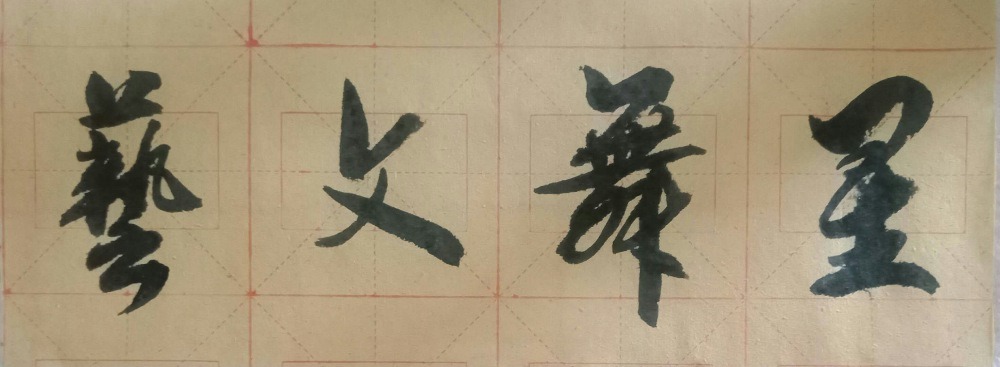 星舞文藝